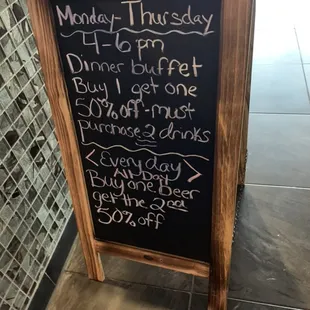 Monday-Thursday
4-6pm
Dinner buffet
Buy 1 get one
50% off-must
purchase 2 drinks
<Everyday>
All Day
Buy one Beer
get the 2nd
50% off